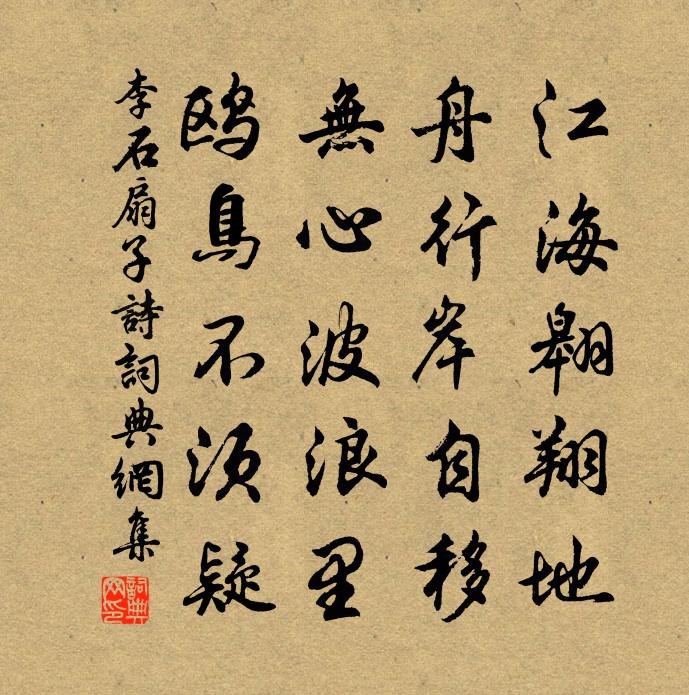 江海翱翔地
舟行岸自移
無心波浪里
鸥鳥不須疑
李石扇子詩詞典網集
詞典网印